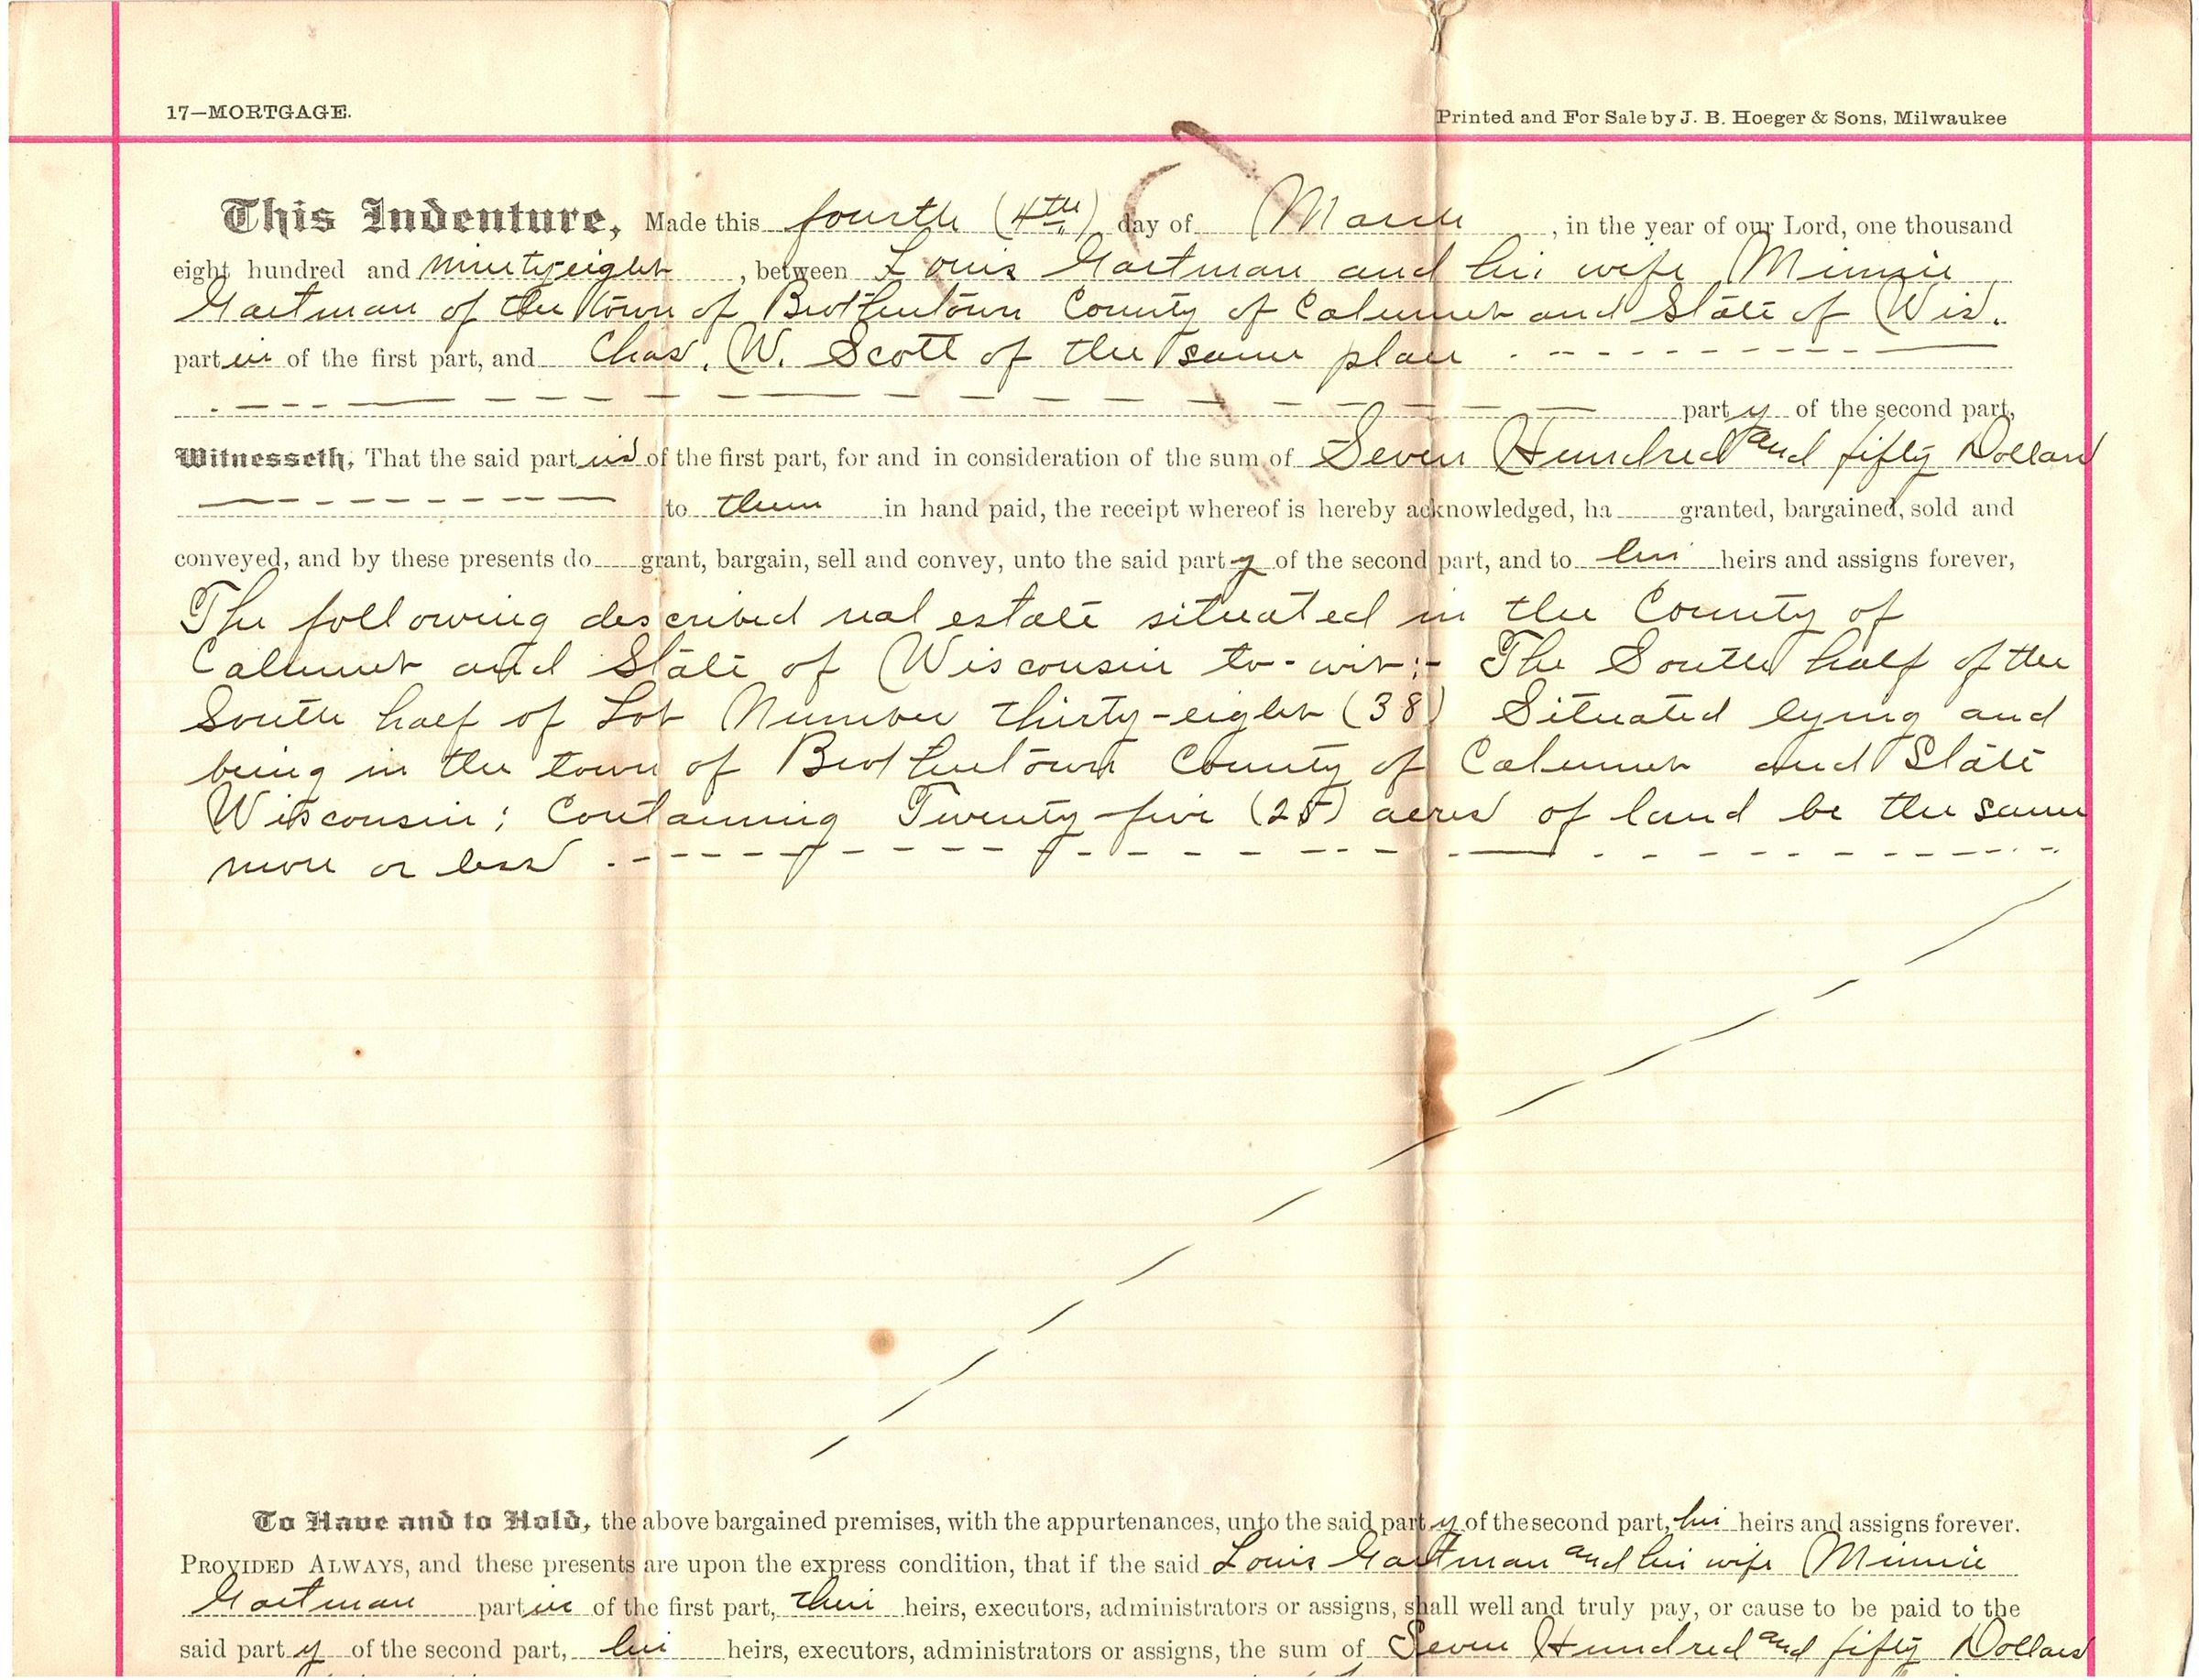 17—MORTGAGE.
Printed and For Sale by J. B. Hoeger & Sons, Milwaukee
This Indenture, Made this fourth (4th) day of March, in the year of our Lord, one thousand
eight hundred and ninety-eight, between Louis Gartman and his wife Minnie
Gartman of the town of Brothertown County of Calumet and State of Wis.
parties of the first part, and Chas. W. Scott of the same place
party of the second part,
Witnesseth, That the said parties of the first part, for and in consideration of the sum of Seven Hundred and fifty Dollars
to them in hand paid, the receipt whereof is hereby acknowledged, ha granted, bargained, sold and
conveyed, and by these presents do grant, bargain, sell and convey, unto the said party of the second part, and to his heirs and assigns forever,
The following described real estate situated in the County of
Calumet and State of Wisconsin to-wit:- The South half of the
South half of Lot Number thirty-eight (38) Situated lying and
being in the town of Brothertown County of Calumet and State
Wisconsin; Containing Twenty-five (25) acres of land be the same
more or less
To Have and to Hold, the above bargained premises, with the appurtenances, unto the said party of the second part, his heirs and assigns forever.
PROVIDED ALWAYS, and these presents are upon the express condition, that if the said Louis Gartman and his wife Minnie
Gartman parties of the first part, their heirs, executors, administrators or assigns, shall well and truly pay, or cause to be paid to the
said party of the second part, his heirs, executors, administrators or assigns, the sum of Seven Hundred and fifty Dollars